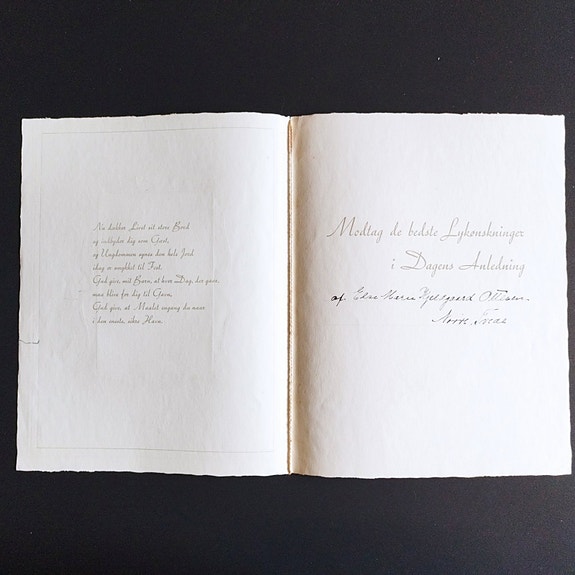 Nu dækker Livet sit store Bord
og indbyder dig som Gæst,
og Ungdommen synes den hele Jord
idag er smykket til Fest.
Gud give, mit Barn, at hver Dag, der gaar,
maa blive for dig til Gavn,
Gud give, at Maalet engang du naar
i den eneste, sikre Havn.
Modtag de bedste Lykønskninger
i Dagens Anledning
af Else Marie Kjelgaard Ottesen.
Nørre